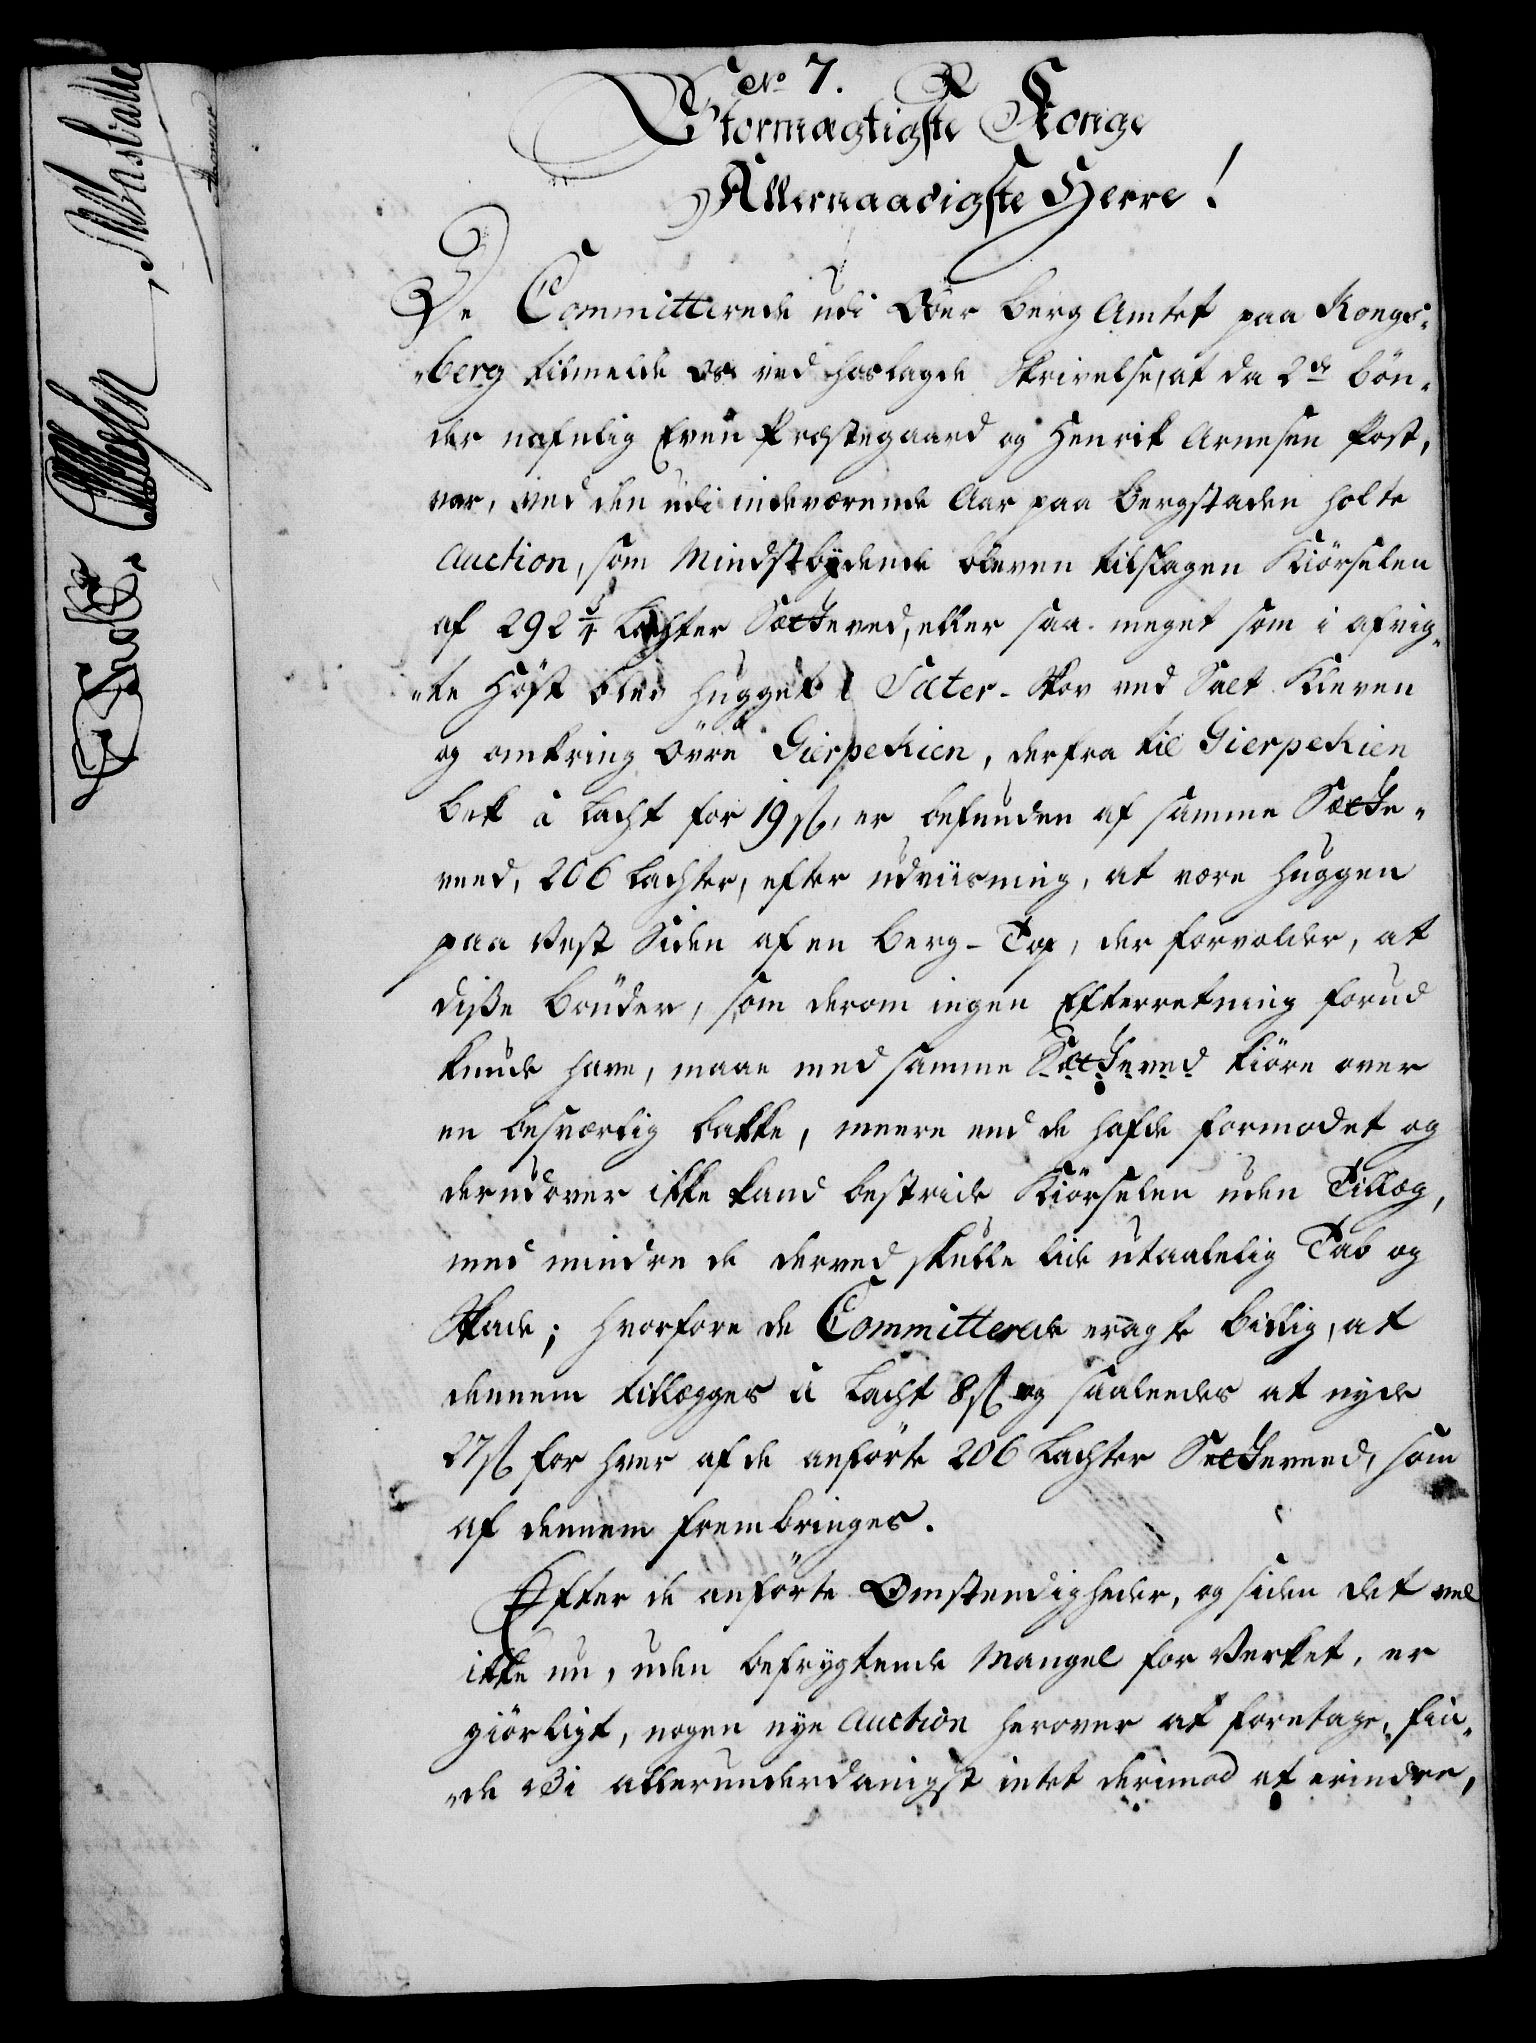 No 7.
Stormægtigste Konge
Allernaadigste Herre!
De Committerede udi Ober Berg Amtet paa Kongs-
-berg tilmelde os ved hoslagde Skrivelse, at da 2de Bön-
der nafnlig Even Præstegaard og Henrik Arnesen Post,
var, ved den udi indeværende Aar paa Bergstaden holte
Auction, som Mindstbydende bleven tilslagen Kiörselen
af 292 3/4 Lachter Sætteved, eller saa meget som i afvig-
-te Höst blev hugget i Sæter-Skov ved Salt Kleven
og omkring Övre Gierpekien, derfra til Gierpekien
Bek à Lacht for 19 ß, er befunden af samme Sætte-
veed, 206 Lachter, efter udviisning, at være huggen
paa Vest Siden af en Berg-Top, der forvolder, at
disse Bönder, som derom ingen Efterretning forud
kunde have, maae med samme Sætteved kiöre over
en besværlig Bakke, meere end de hafde formodet og
derudover ikke kand bestride Kiörselen uden Tillæg,
med mindre de derved skulle lide utaalelig Tab og
Skade; hvorfore de Committerede eragte billig, at
dennem tillægges à Lacht 8 ß og saaleedes at nyde
27 ß for hver af de anförte 206 Lachter Sætteveed, som
af dennem frembringes.
Efter de anförte Omstendigheder, og siden det vel
ikke nu, uden befrygtende Mangel for Verket, er
giörligt, nogen nye Auction herover at foretage, fin-
-de Vi allerunderdanigst intet derimod at erindre,